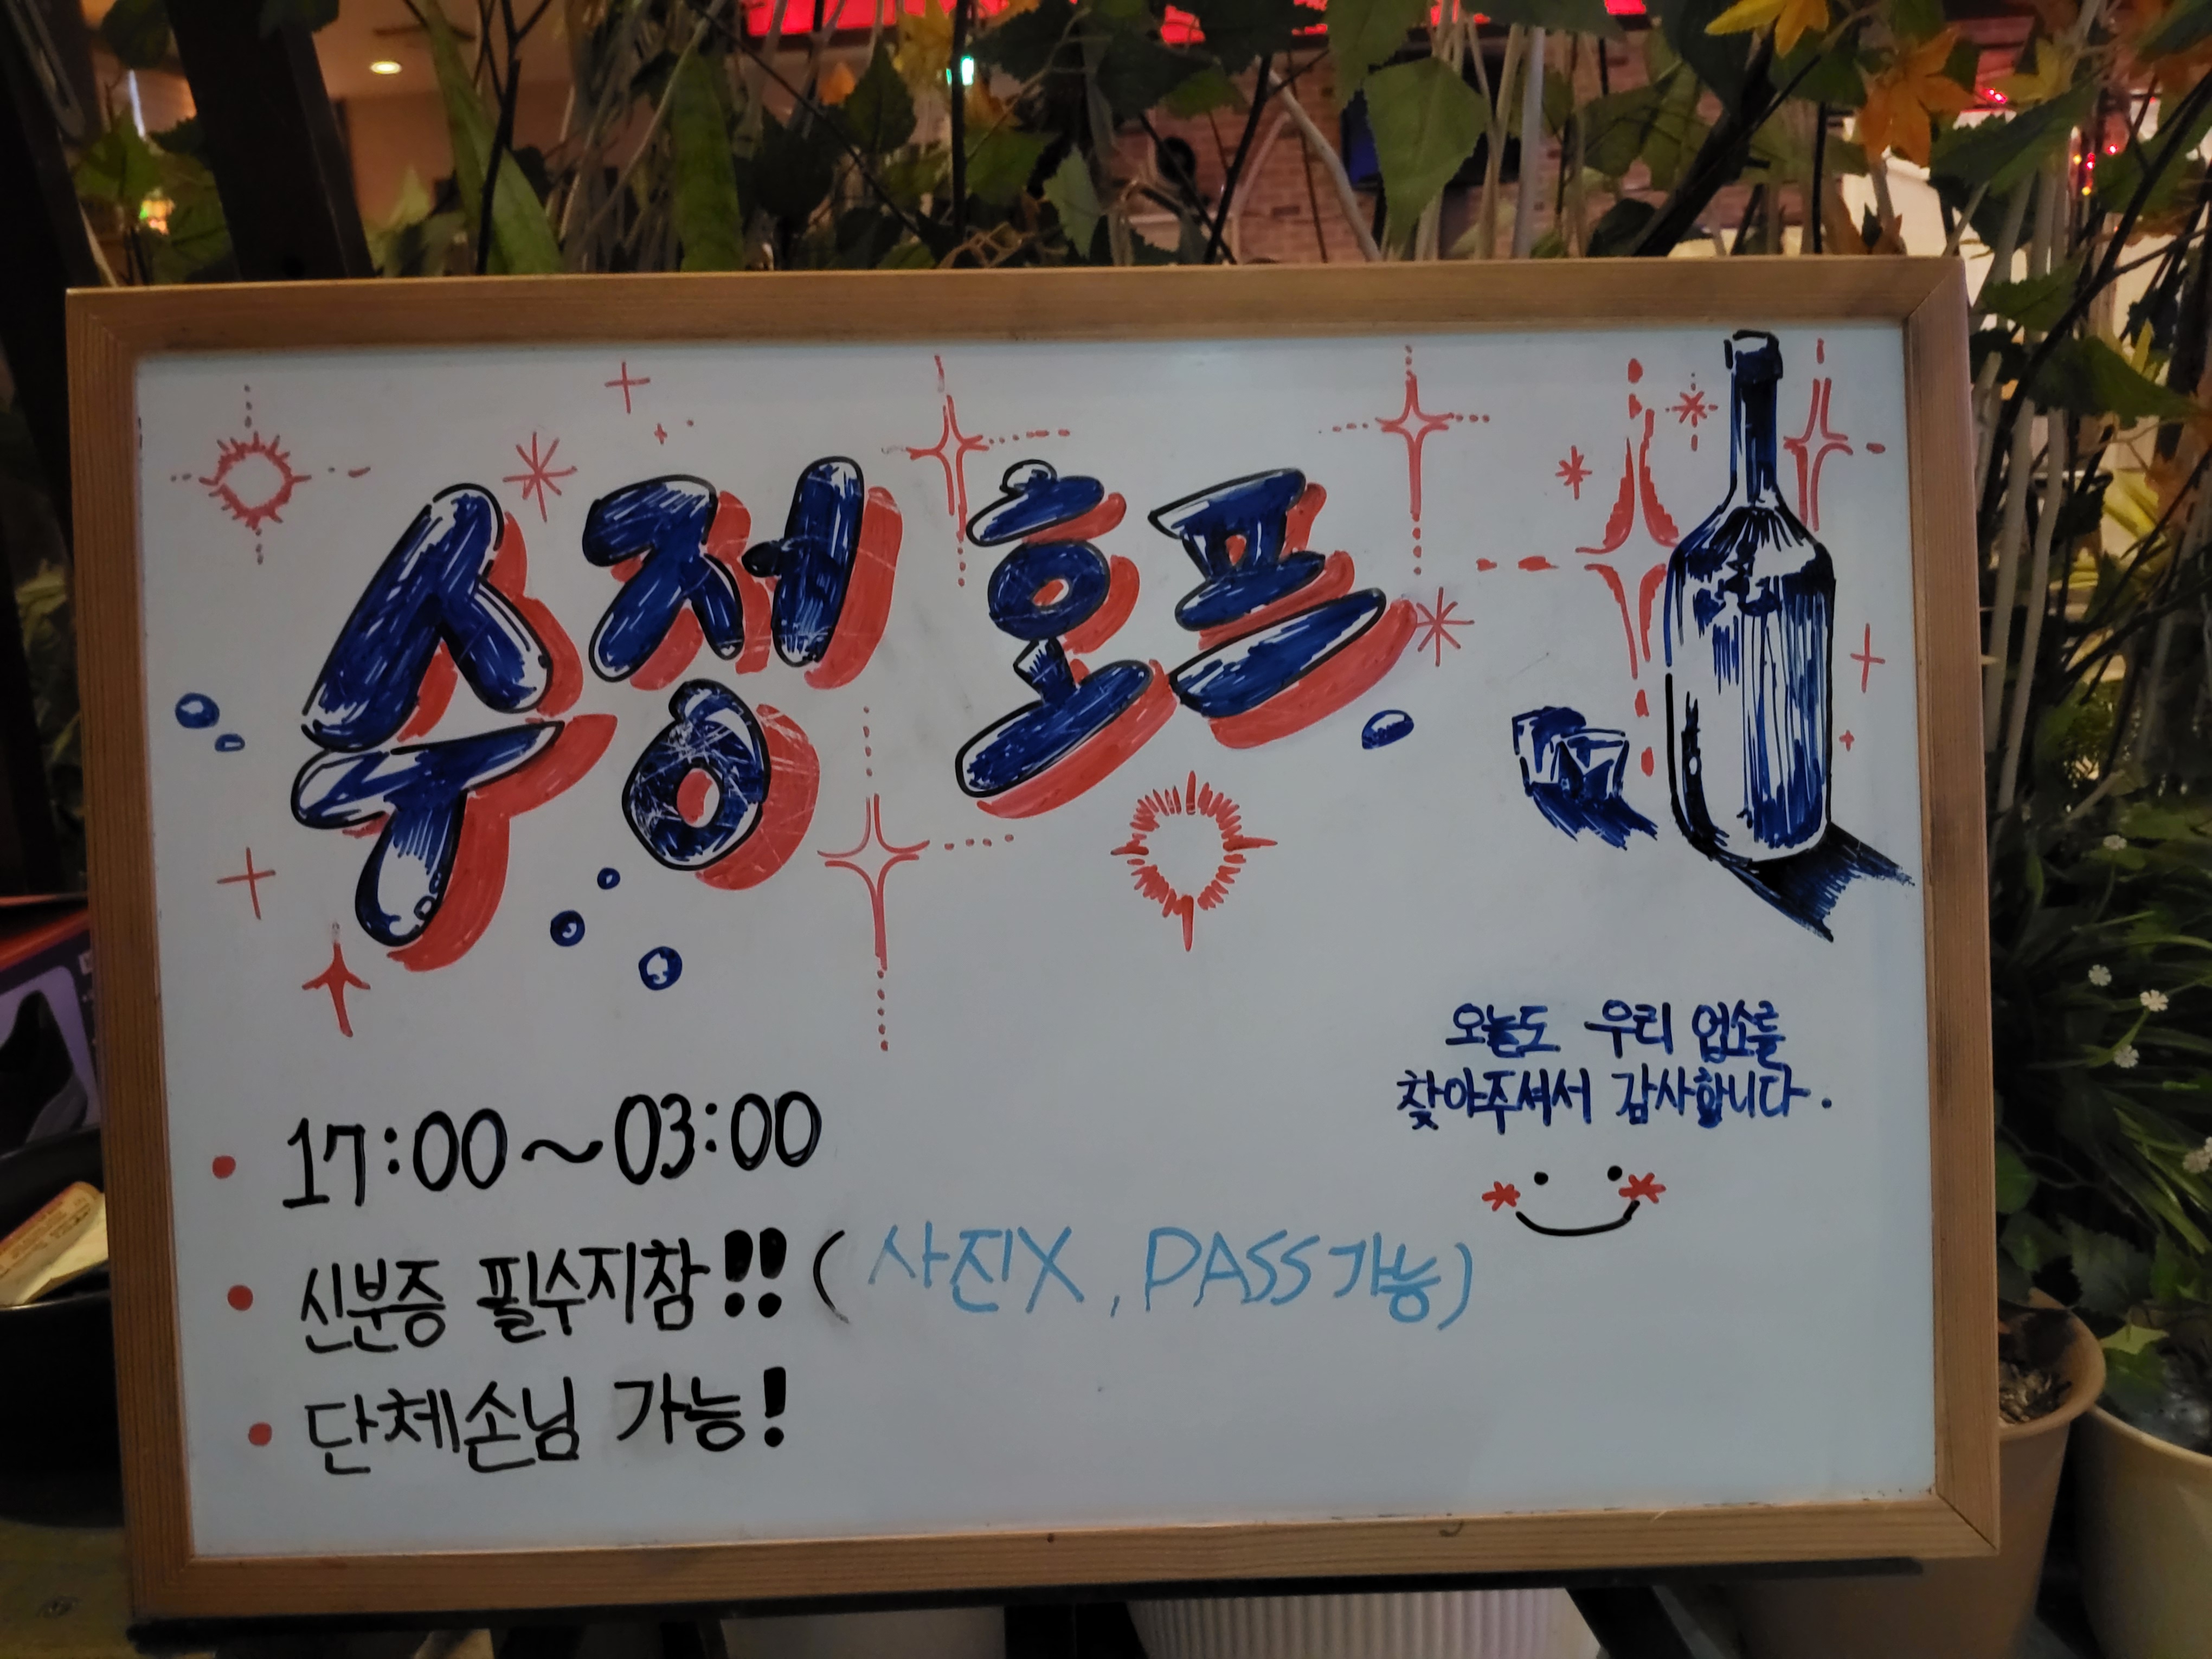 수정 호프
오늘도 우리 업소를
찾아주셔서 감사합니다.
• 17:00~03:00
• 신분증 필수지참!! (사진X, PASS가능)
• 단체손님 가능!